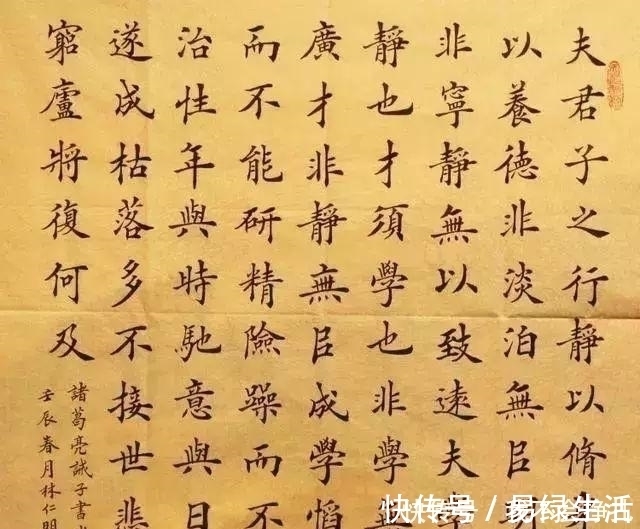 夫君子之行靜以脩
以養德非淡泊無㠯
非寧靜無以致遠夫
靜也才須學也非學
廣才非靜無㠯成學慆
而不能研精險躁而不
治性年與時馳意與日
遂成枯落多不接世悲
窮廬將復何及
諸葛亮誡子書
壬辰春月林仁明
快传号/易绿生活